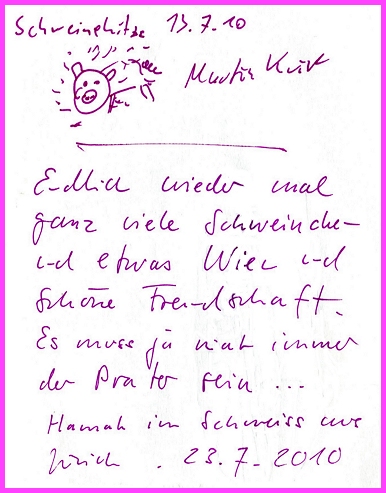 Schweinehitze 13.7.10
Martin
Endlich wieder mal
ganz viele Schweinche-
und etwas Wien und
schöne Freundschaft.
Es muss ja nicht immer
der Prater sein ...
Hannah im Schweiss aus
Zürich . 23.7-2010